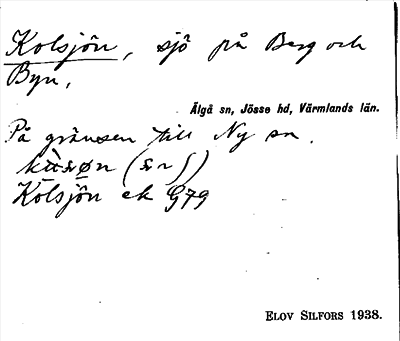 Kolsjön, sjö på Berg och
Byn,
Älgå sn, Jösse hd, Värmlands län.
På gränsen till Ny sn.
Kolsjön ek G79
ELOV SILFORS 1938.